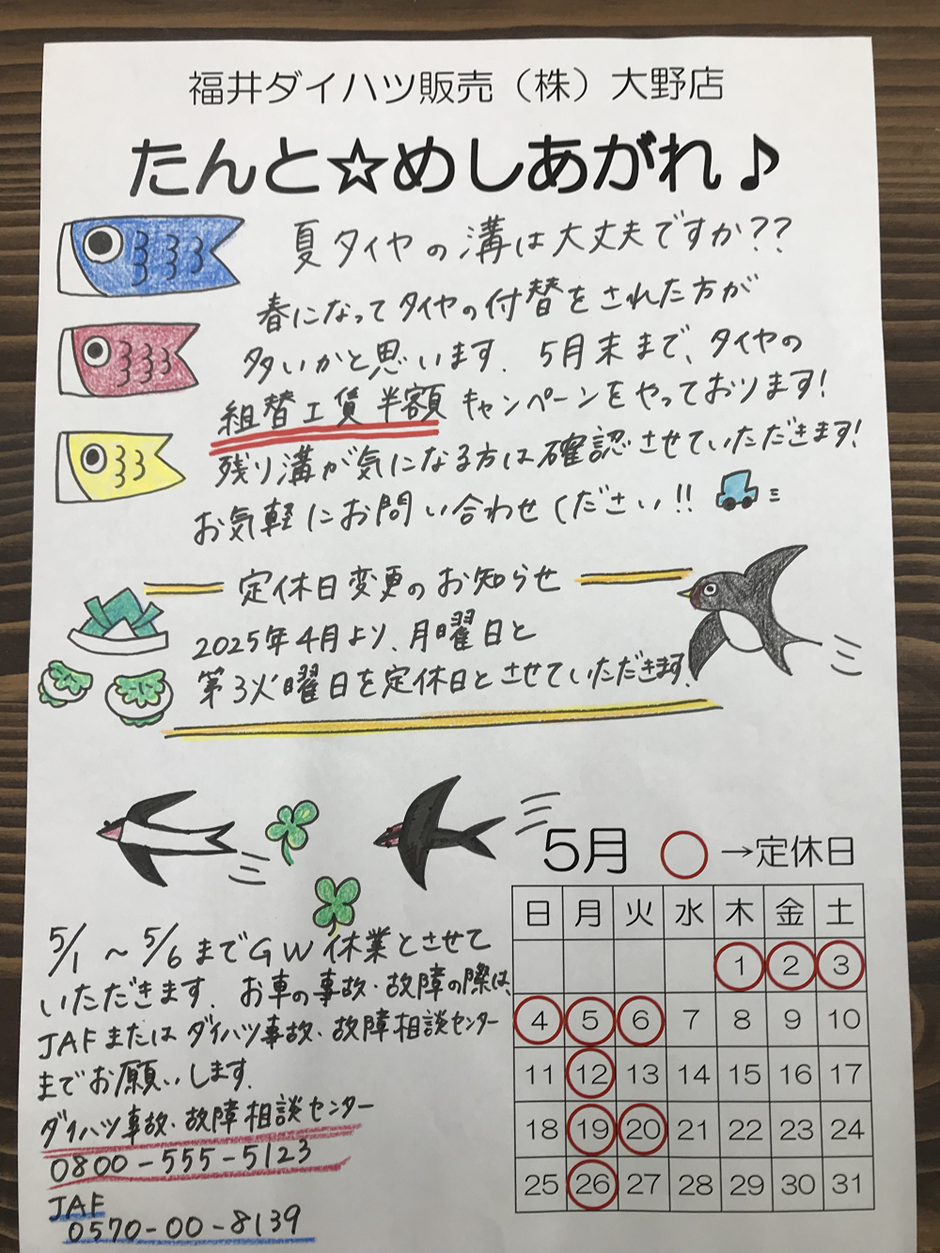 福井ダイハツ販売（株）大野店
たんと☆めしあがれ♪
夏タイヤの溝は大丈夫ですか??
春になってタイヤの付替をされた方が
多いかと思います. 5月末まで、タイヤの
組替工賃半額キャンペーンをやっております!
残り溝が気になる方は確認させていただきます!
お気軽にお問い合わせください!!
定休日変更のお知らせ
2025年4月より、月曜日と
第3火曜日を定休日とさせていただきます.
5月 ○→定休日
日 月 火 水 木 金 土
1 2 3
4 5 6 7 8 9 10
11 12 13 14 15 16 17
18 19 20 21 22 23 24
25 26 27 28 29 30 31
5/1 ~ 5/6までGW休業とさせて
いただきます. お車の事故・故障の際は、
JAFまたはダイハツ事故・故障相談センター
までお願いします.
ダイハツ事故・故障相談センター
0800-555-5123
JAF
0570-00-8139